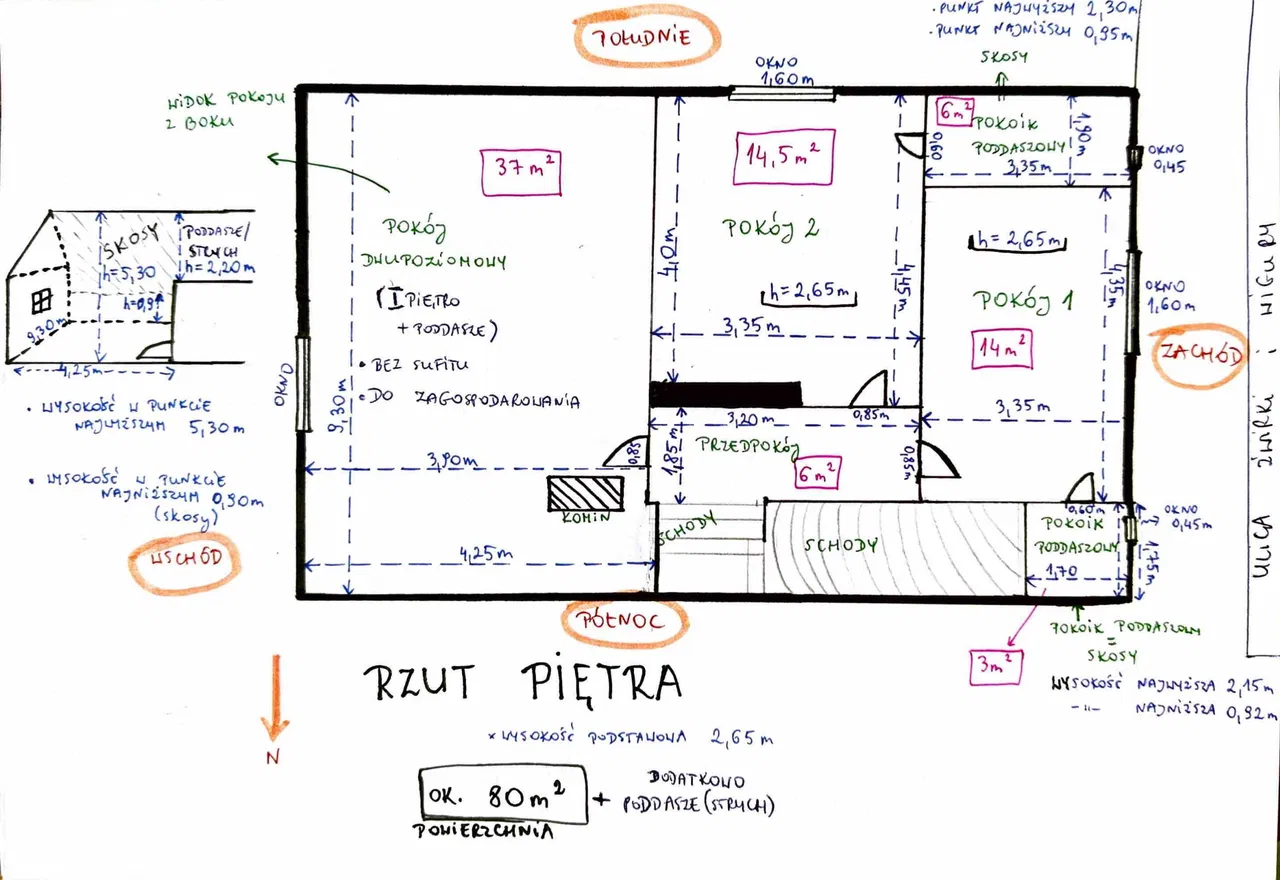 POŁUDNIE
. PUNKT NAJWYŻSZY 2,30m
. PUNKT NAJNIŻSZY 0,95m
SKOSY
OKNO
1,60m
WIDOK POKOJU
Z BOKU
37 m²
14,5 m²
6 m²
POKOIK
PODDASZOWY
1,90m
0,60
3,35m
OKNO
0,45
POKÓJ
DWUPOZIOMOWY
(I PIĘTRO
+ PODDASZE)
• BEZ SUFITU
• DO ZAGOSPODAROWANIA
POKÓJ 2
h=2,65m
4,0m
4,45m
3,35m
h=2,65m
POKÓJ 1
14 m²
4,35m
3,35m
OKNO
1,60m
ZACHÓD
ULICA ŻWIRKI i WIGURY
SKOSY
h=5,30
PODDASZE/
STRYCH
h=2,20m
h=0,9
9,30m
4,25m
• WYSOKOŚĆ W PUNKCIE
NAJWYŻSZYM 5,30m
• WYSOKOŚĆ W PUNKCIE
NAJNIŻSZYM 0,90m
(skosy)
WSCHÓD
OKNO
9,30m
3,90m
0,85
KOMIN
4,25m
3,20m
0,85m
1,85m
PRZEDPOKÓJ
6 m²
0,85m
SCHODY
SCHODY
0,60m
POKOIK
PODDASZOWY
1,70
OKNO
0,45m
1,75m
PÓŁNOC
POKOIK PODDASZOWY
=
SKOSY
3m²
WYSOKOŚĆ NAJWYŻSZA 2,15m
-"- NAJNIŻSZA 0,92m
N
RZUT PIĘTRA
× WYSOKOŚĆ PODSTAWOWA 2,65m
OK. 80m²
+ DODATKOWO
PODDASZE (STRYCH)
POWIERZCHNIA